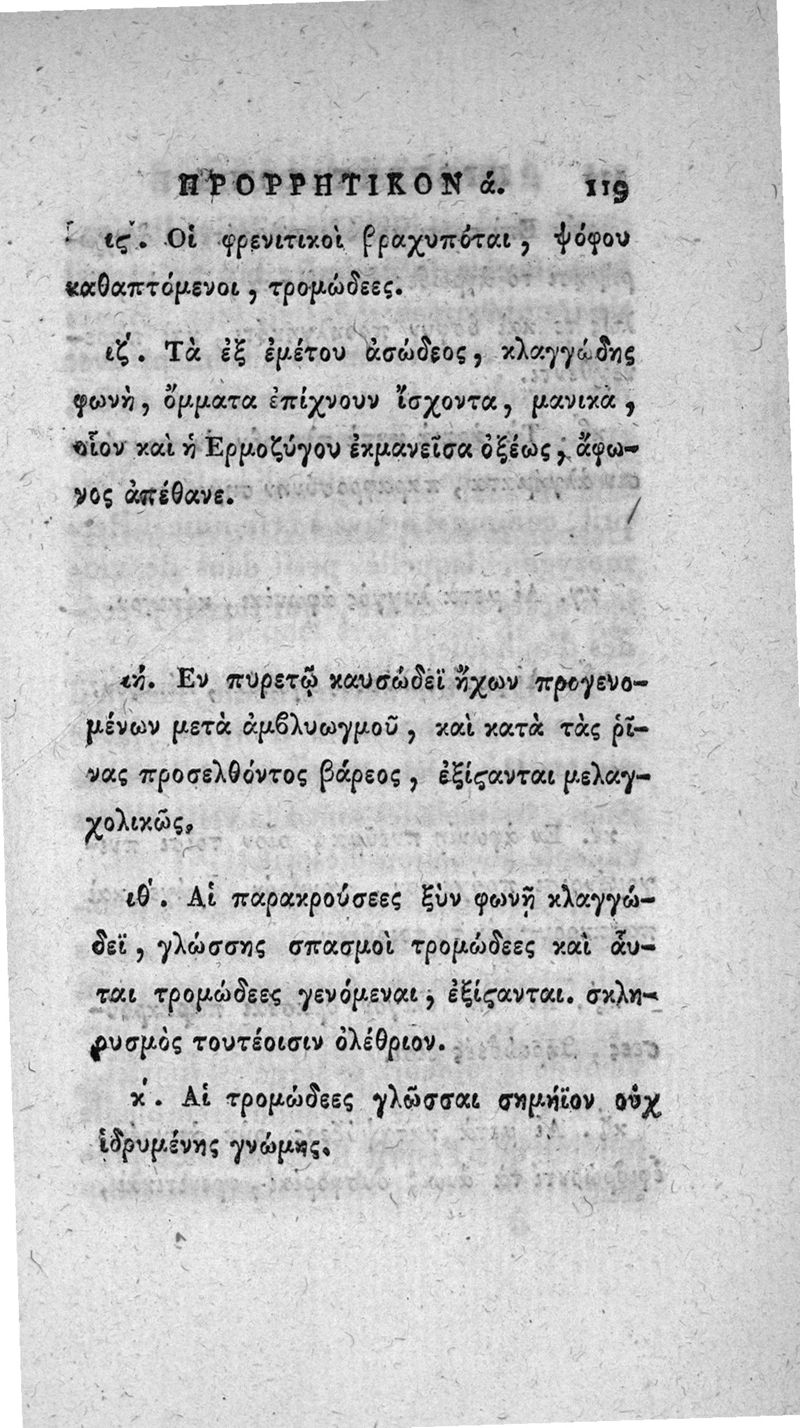 ΠΡΟΡΡΗΤΙΚΟΝ ά. 119
ις΄. Οἱ φρενιτικοὶ βραχυπόται, ψόφου
καθαπτόμενοι, τρομώδεες.
ιζ΄. Τὰ ἐξ ἐμέτου ἀσώδεος, κλαγγώδης
φωνὴ, ὄμματα ἐπίχνουν ἴσχοντα, μανικὰ,
οἷον καὶ ἡ Ερμοζύγου ἐκμανεῖσα ὀξέως, ἄφω-
νος ἀπέθανε.
ιή. Εν πυρετῷ καυσώδεϊ ἤχων προγενο-
μένων μετὰ ἀμβλυωγμοῦ, καὶ κατὰ τὰς ῥῖ-
νας προσελθόντος βάρεος, ἐξίϛανται μελαγ-
χολικῶς.
ιθ΄. Αἱ παρακρούσεες ξὺν φωνῇ κλαγγώ-
δεϊ, γλώσσης σπασμοὶ τρομώδεες καὶ ἆυ-
ται τρομώδεες γενόμεναι, ἐξίϛανται. σκλη-
ρυσμὸς τουτέοισιν ὀλέθριον.
κ΄. Αἱ τρομώδεες γλῶσσαι σημήϊον οὐχ
ἱδρυμένης γνώμης.